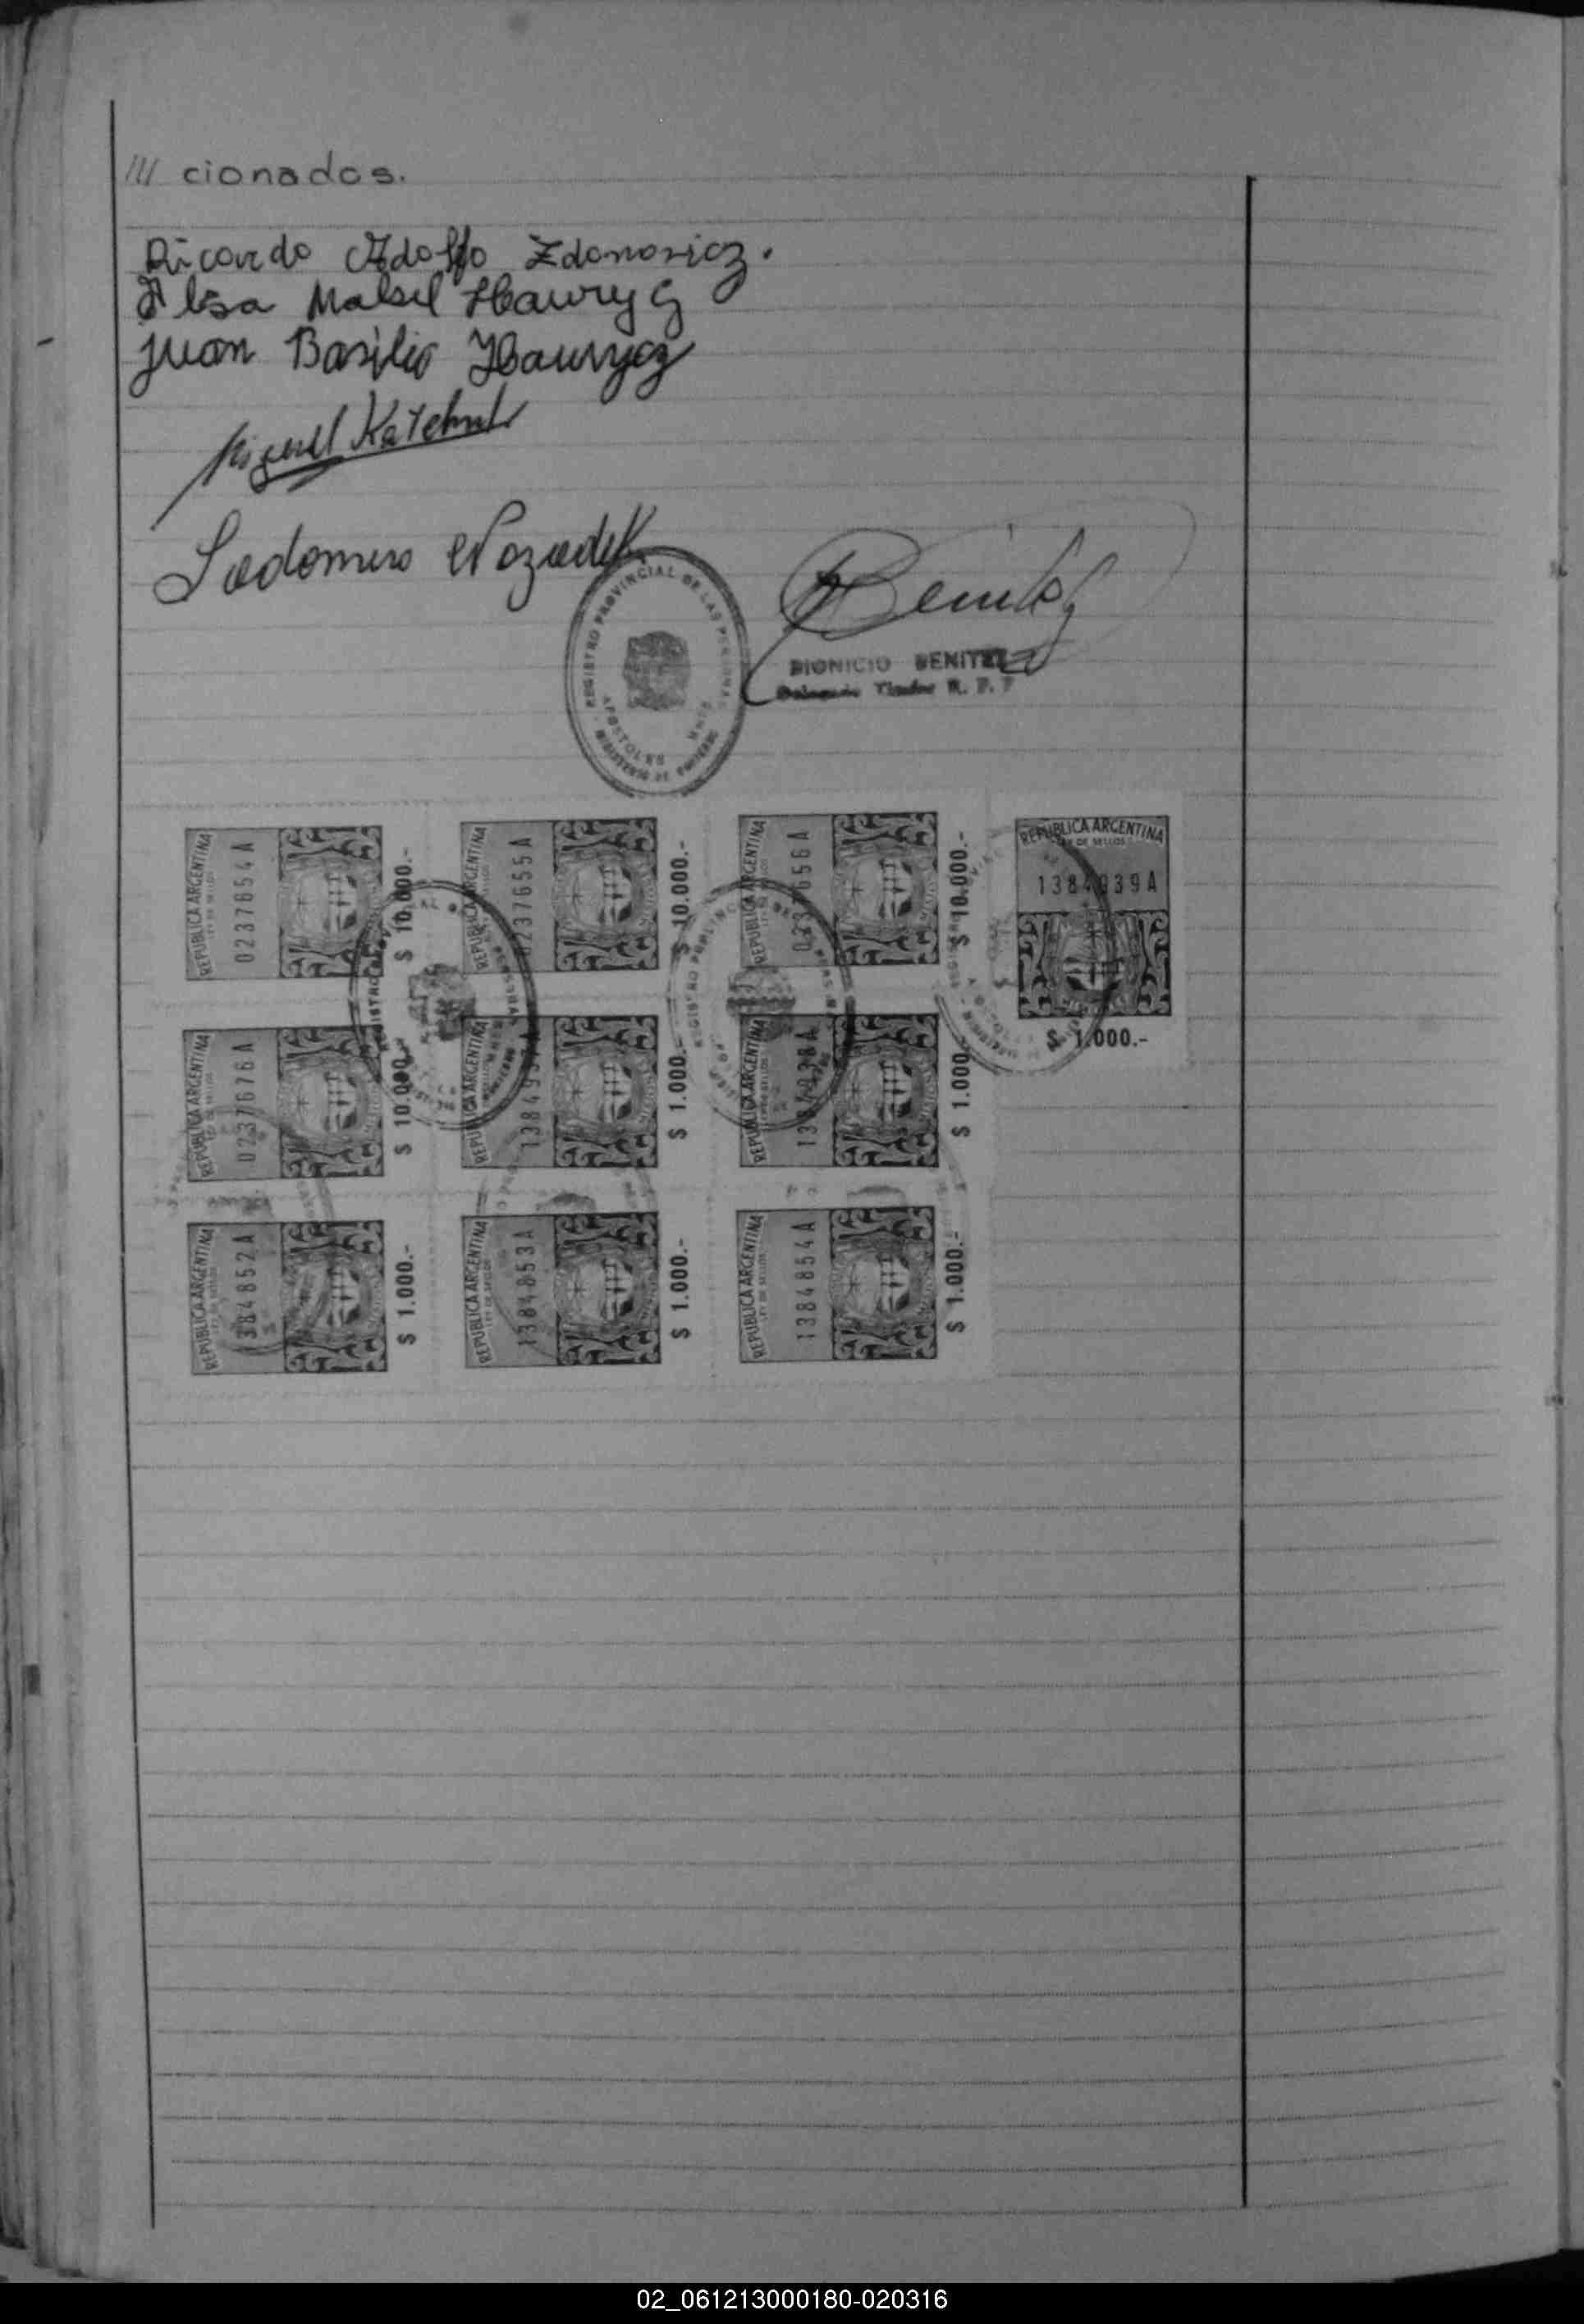 /// cionados.
Ricardo Adolfo Zdanovicz.
Elsa Mabel Hawrycz
Juan Basilio Hawrycz
Miguel Katchuk
Ladomiro Nozadek
Benitez
REGISTRO PROVINCIAL DE LAS PERSONAS
APOSTOLES
MINISTERIO DE GOBIERNO
DIONICIO BENITEZ
Delegado Titular R. P. P
REPUBLICA ARGENTINA
LEY DE SELLOS
0237654A
$ 10.000.-
REPUBLICA ARGENTINA
0237655A
$ 10.000.-
REPUBLICA ARGENTINA
0237656A
$ 10.000.-
REPUBLICA ARGENTINA
LEY DE SELLOS
1384939A
$ 1.000.-
REPUBLICA ARGENTINA
0237676A
$ 10.000.-
REPUBLICA ARGENTINA
$ 1.000.-
REPUBLICA ARGENTINA
1384938A
$ 1.000.-
REPUBLICA ARGENTINA
1384852A
$ 1.000.-
REPUBLICA ARGENTINA
LEY DE SELLOS
1384853A
$ 1.000.-
REPUBLICA ARGENTINA
LEY DE SELLOS
1384854A
$ 1.000.-
02_061213000180-020316